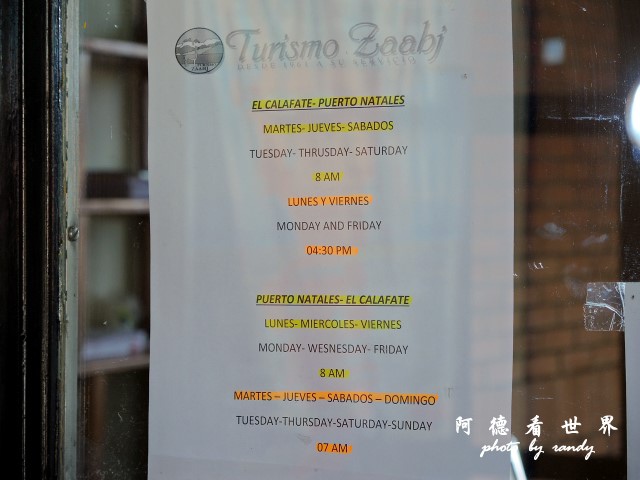 Turismo Zaahj
EL CALAFATE- PUERTO NATALES
MARTES- JUEVES- SABADOS
TUESDAY- THRUSDAY- SATURDAY
8 AM
LUNES Y VIERNES
MONDAY AND FRIDAY
04:30 PM
PUERTO NATALES- EL CALAFATE
LUNES- MIERCOLES- VIERNES
MONDAY- WESNESDAY- FRIDAY
8 AM
MARTES – JUEVES – SABADOS – DOMINGO
TUESDAY-THURSDAY-SATURDAY-SUNDAY
07 AM
阿德看世界
photo by randy